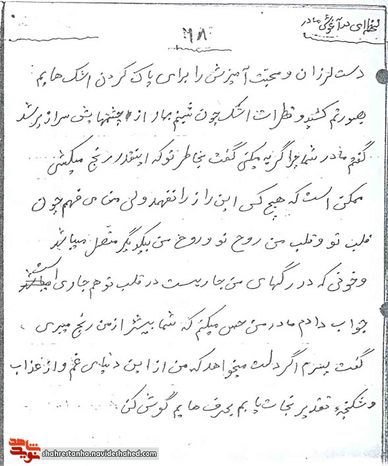 لحظه‌ای در آغوش مادر
۲۸
دست لرزان و محبت آمیزش را برای پاک کردن اشک هایم
بصورتم کشید و قطرات اشک چون شبنم بهار از چشمهایش سرازیر شد
گفتم مادر شما چرا گریه میکنی گفت بخاطر تو که اینقدر رنج میکشی
ممکن است که هیچ کس این راز را نفهمد ولی من می فهمم چون
قلب تو و قلب من روح تو و روح من بیکدیگر متصل میباشد
و خونی که در رگهای من جاریست در قلب تو هم جاری
جواب دادم مادر من حس میکنم که شما بیشتر از من رنج میبری
گفت پسرم اگر دلت میخواهد که من از این دنیای غم و از عذاب
و شکنجه تقدیر نجات یابم بحرف هایم گوش کن
نوید شاهد
shahrestanha.navideshahed.com